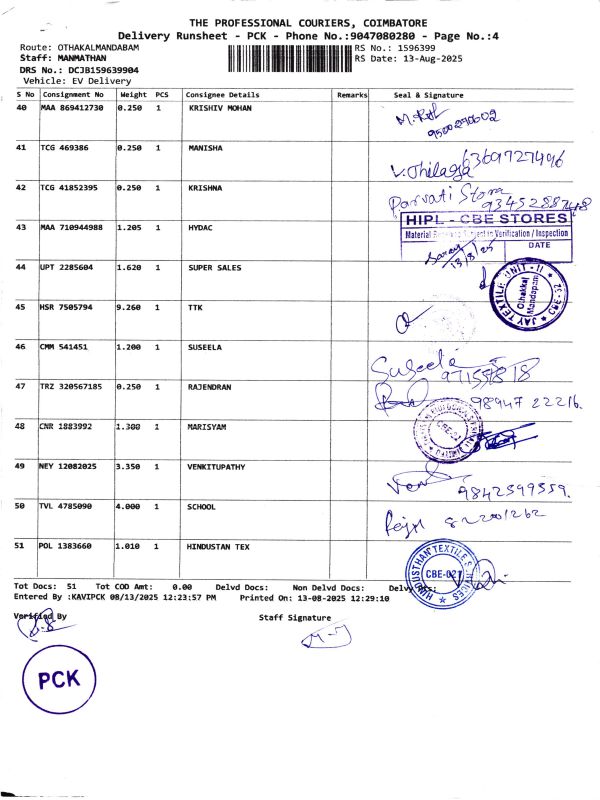 THE PROFESSIONAL COURIERS, COIMBATORE
Delivery Runsheet - PCK - Phone No.:9047080280 - Page No.:4
Route: OTHAKALMANDABAM RS No.: 1596399
Staff: MANMATHAN RS Date: 13-Aug-2025
DRS No.: DCJB159639904
Vehicle: EV Delivery
S No Consignment No Weight PCS Consignee Details Remarks Seal & Signature
40 MAA 869412730 0.250 1 KRISHIV MOHAN
9500290602
41 TCG 469386 0.250 1 MANISHA
V.Thilaga 6369727496
42 TCG 41852395 0.250 1 KRISHNA
Parvati Store
9345288748
43 MAA 710944988 1.205 1 HYDAC
HIPL - CBE STORES
Material Subject in Verification / Inspection
DATE
13/8/25
44 UPT 2285604 1.620 1 SUPER SALES
JAY TEXTILE UNIT - II CBE-32
Othakkal
Mandapam
45 HSR 7505794 9.260 1 TTK
46 CMM 541451 1.200 1 SUSEELA
Suseela
47 TRZ 320567185 0.250 1 RAJENDRAN
98947 22216.
48 CNR 1883992 1.300 1 MARISYAM
49 NEY 12082025 3.350 1 VENKITUPATHY
9842599559.
50 TVL 4785090 4.000 1 SCHOOL
51 POL 1383660 1.010 1 HINDUSTAN TEX
HINDUSTHAN TEXTILE
CBE-021
Tot Docs: 51 Tot COD Amt: 0.00 Delvd Docs: Non Delvd Docs:
Entered By :KAVIPCK 08/13/2025 12:23:57 PM Printed On: 13-08-2025 12:29:10
Verified By Staff Signature
PCK